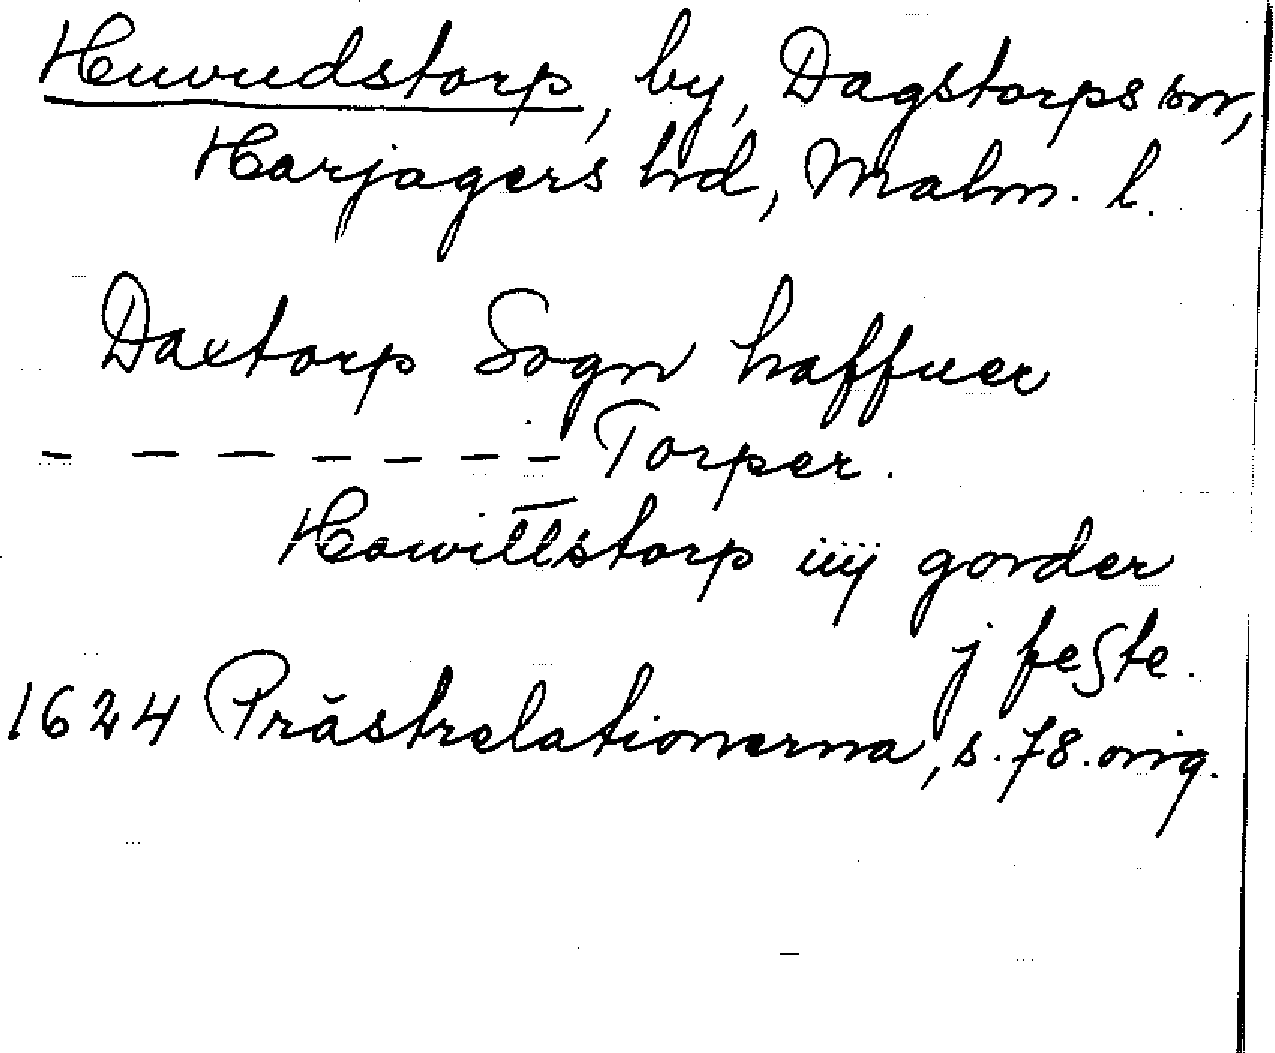 Huvudstorp, by, Dagstorps sn,
Harjagers hd, Malm. l.
Daxtorp Sogn haffuer
- - - - - - - Torper.
Hawittstorp iiij gorder
j feste.
1624 Prästrelationerna, s. 78. orig.